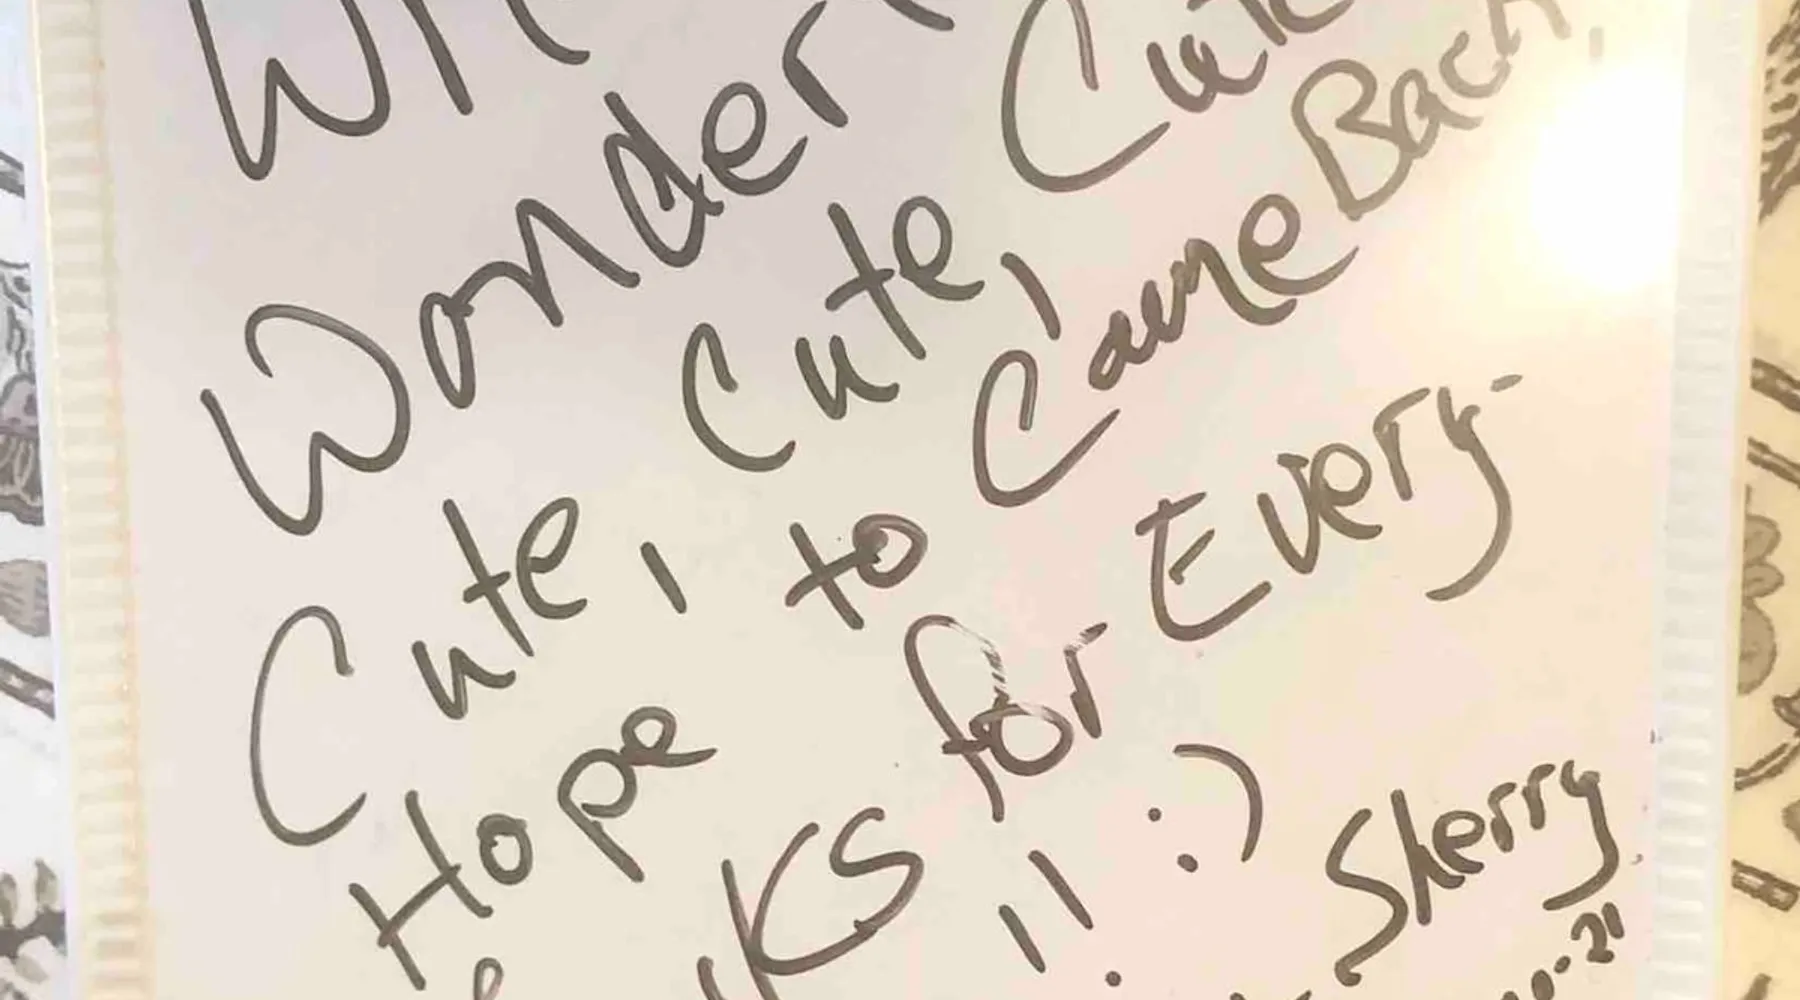 Wonder
Cute, Cute, Cute
Hope to Came Back
KS for Every-
!! :)
Sherry
-21